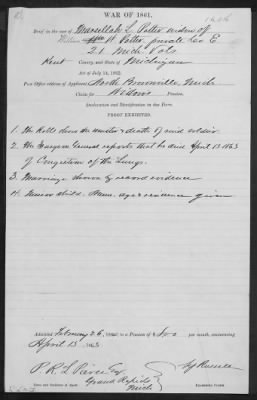 WAR OF 1861.
Brief in the case of Marsellah L. Potter widow of
William H. Potter private Co E
21 Mich Vols
Kent County and State of Michigan
Act of July 14, 1862.
Post Office address of Applicant North Brownville Mich
Claim for Widows Pension.
Declaration and Identification in due Form.
PROOF EXHIBITED.
1. The Rolls show the muster & death of said soldier.
2. The Surgeon General reports that he died April 13. 1863
of Congestion of the Lungs.
3. Marriage shown by record evidence
4. Minor child. Name, age & residence given
Admitted February 26, 186 to a Pension of $8.00 per month, commencing
April 13 1863
P. R. L. Peirce Esq
Grand Rapids
Mich
Name and Residence of Agent.
Examining Clerk.